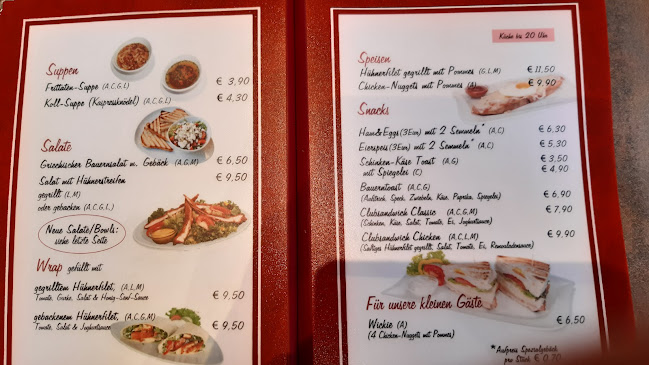 Suppen
Frittaten-Suppe (A,C,G,L) € 3,90
Koll-Suppe (Kaspressknödel) (A,C,G,L) € 4,30
Salate
Griechischer Bauernsalat m. Gebäck (A,G,M) € 6,50
Salat mit Hühnerstreifen € 9,50
gegrillt (L,M)
oder gebacken (A,C,G,L)
Neue Salate/Bowls:
siehe letzte Seite
Wrap gefüllt mit
gegrilltem Hühnerfilet, (A,L,M) € 9,50
Tomate, Gurke, Salat & Honig-Senf-Sauce
gebackenem Hühnerfilet, (A,C,G,M) € 9,50
Tomate, Salat & Joghurtsauce
Küche bis 20 Uhr
Speisen
Hühnerfilet gegrillt mit Pommes (G,L,M) € 11,50
Chicken-Nuggets mit Pommes (A) € 9,90
Snacks
Ham&Eggs(3Eier) mit 2 Semmeln* (A,C) € 6,30
Eierspeis(3Eier) mit 2 Semmeln* (A,C) € 5,30
Schinken-Käse Toast (A,G) € 3,50
mit Spiegelei (C) € 4,90
Bauerntoast (A,C,G) € 6,90
Speck, Zwiebeln, Käse, Paprika, Spiegelei)
Clubsandwich Classic (A,C,G,M) € 7,90
(Schinken, Käse, Salat, Tomate, Ei, Joghurtsauce)
Clubsandwich Chicken (A,C,L,M) € 9,90
(Saftiges Hühnerfilet gegrillt, Salat, Tomate, Ei, Remouladensauce)
Für unsere kleinen Gäste
Wickie (A) € 6,50
(4 Chicken-Nuggets mit Pommes)
*Aufpreis Spezialgebäck
pro Stück € 0,70